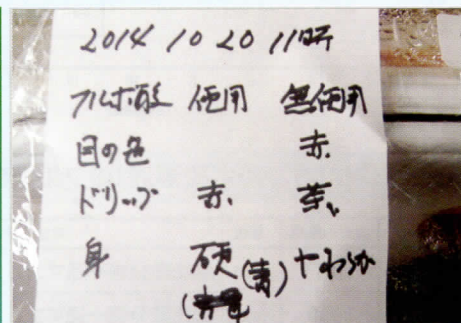 2014 10 20 11時
フルボ酸 使用 無使用
目の色 赤
ドリップ 赤 茶
身 硬(青) やわらか
(青